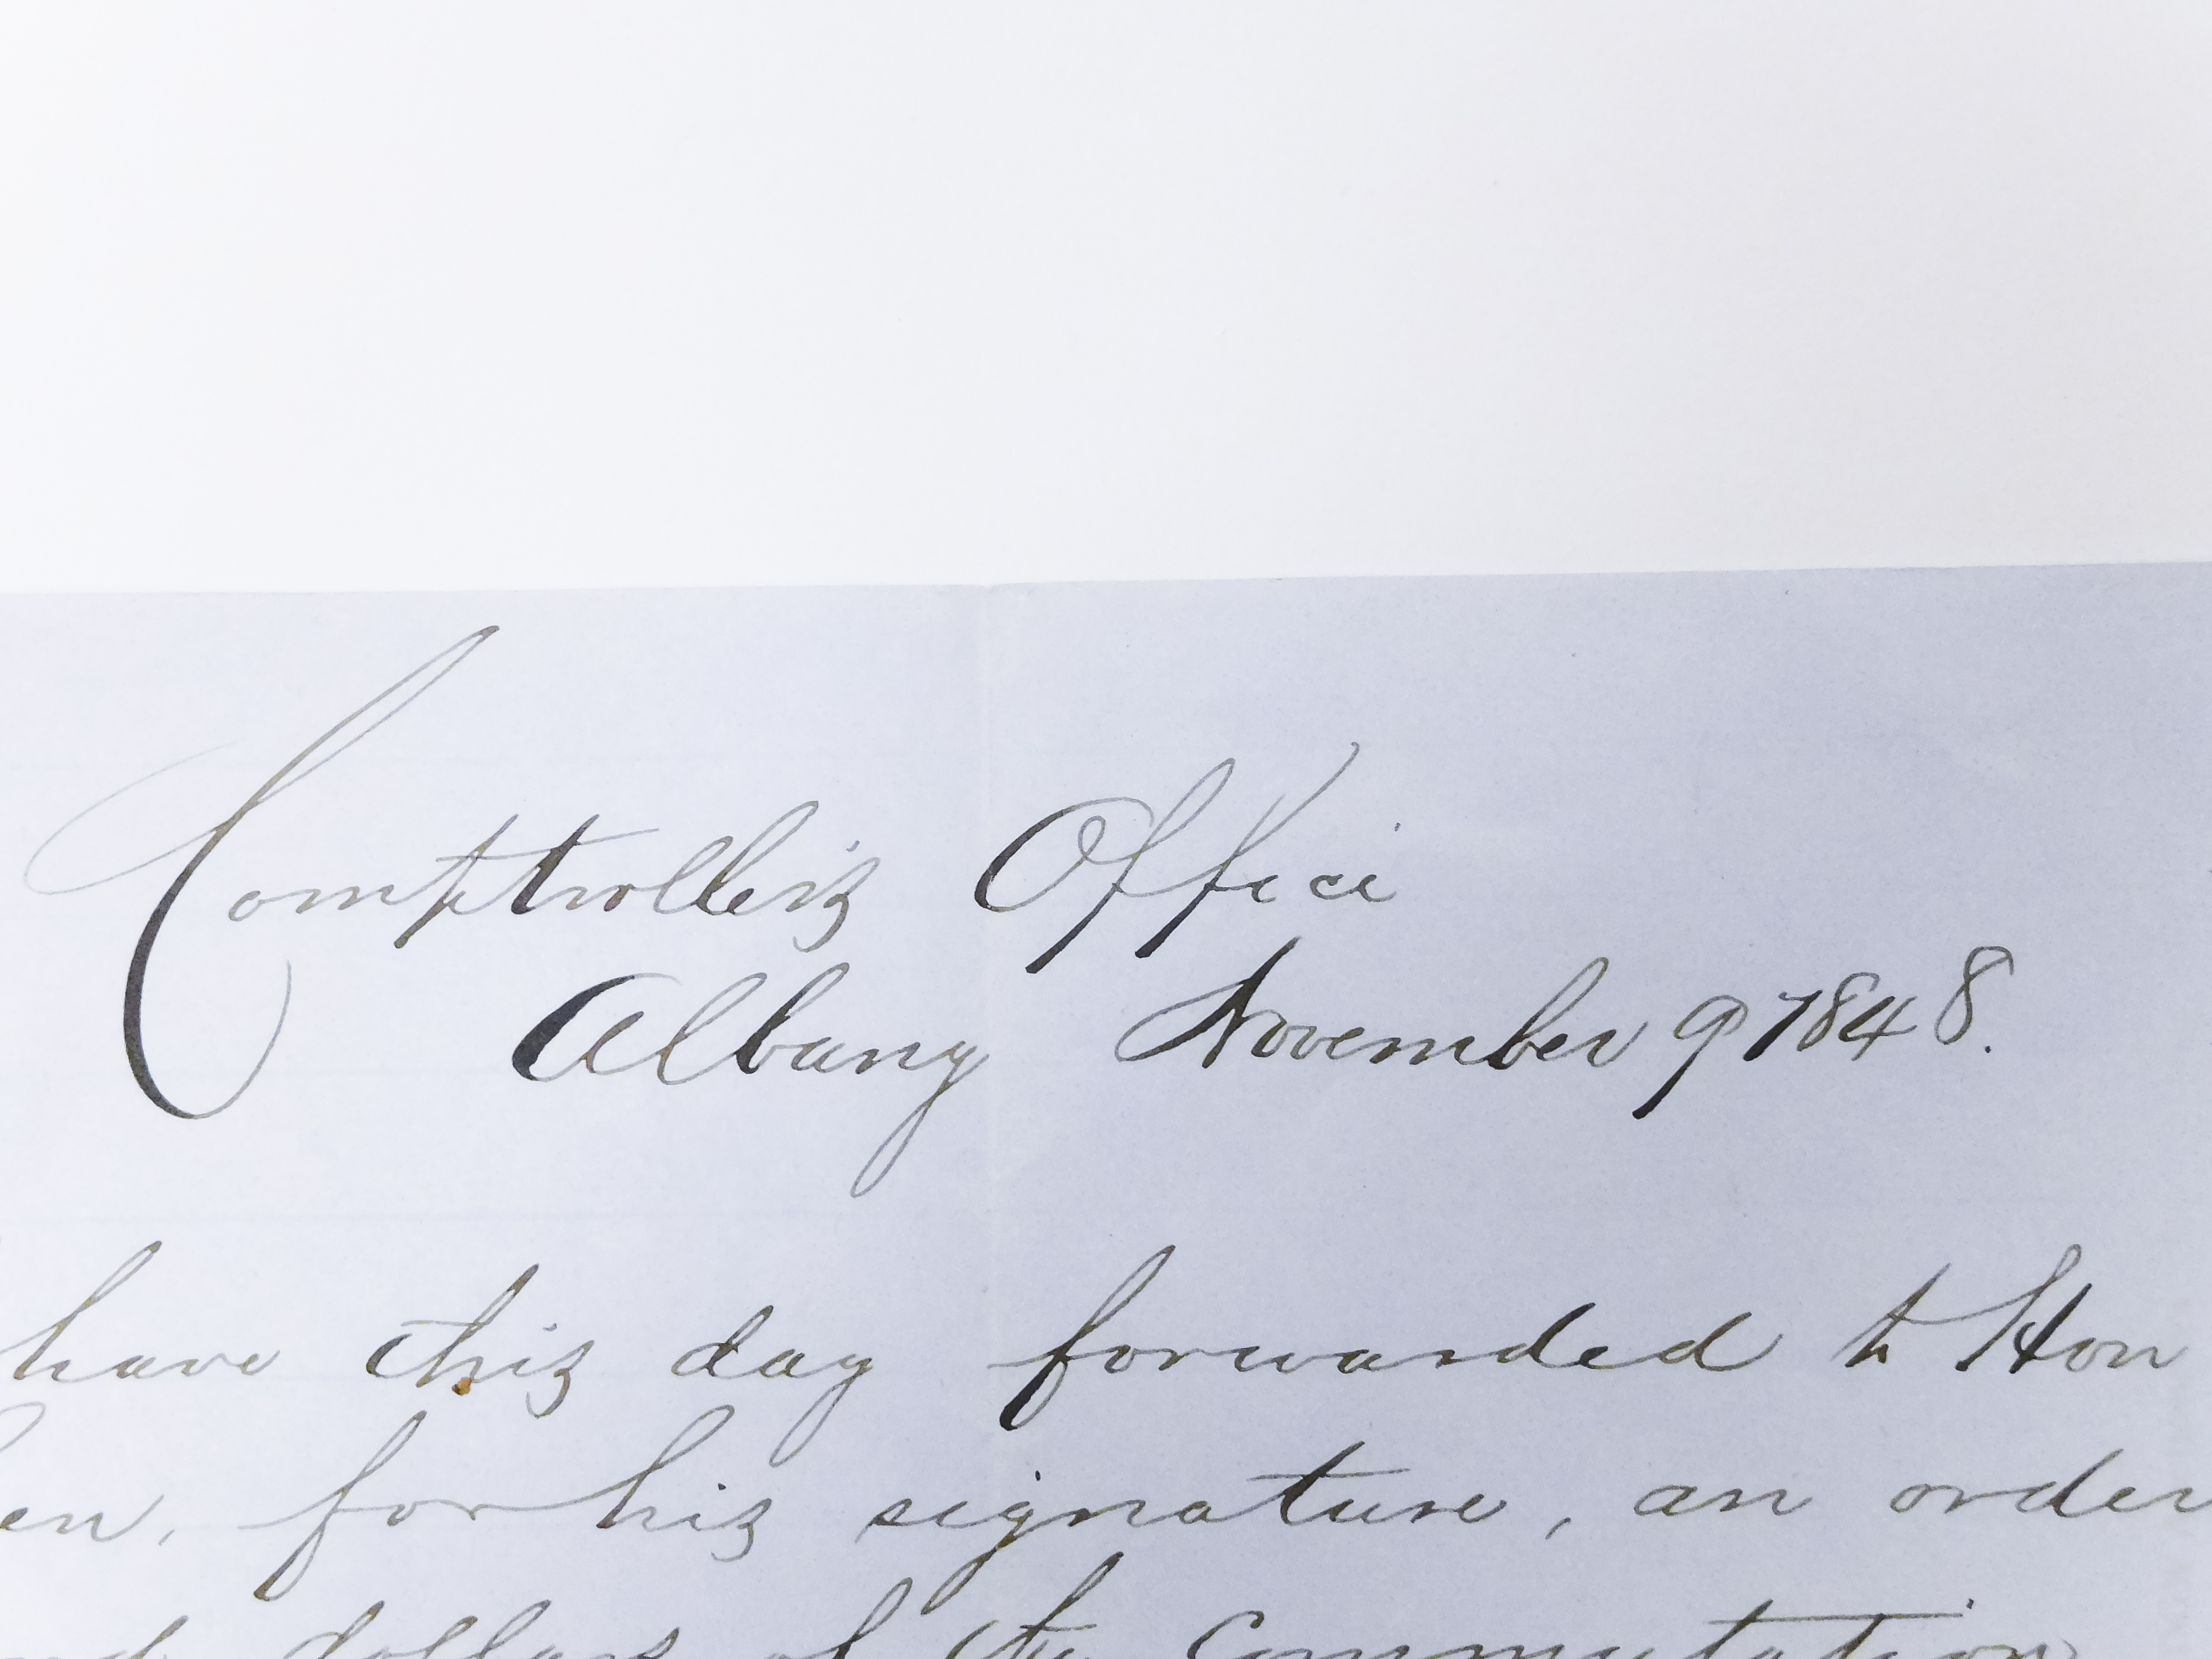 Comptrollers Office
Albany November 9 1848.
have this day forwarded to Hon
en, for his signature, an order
dollars of the Commutation